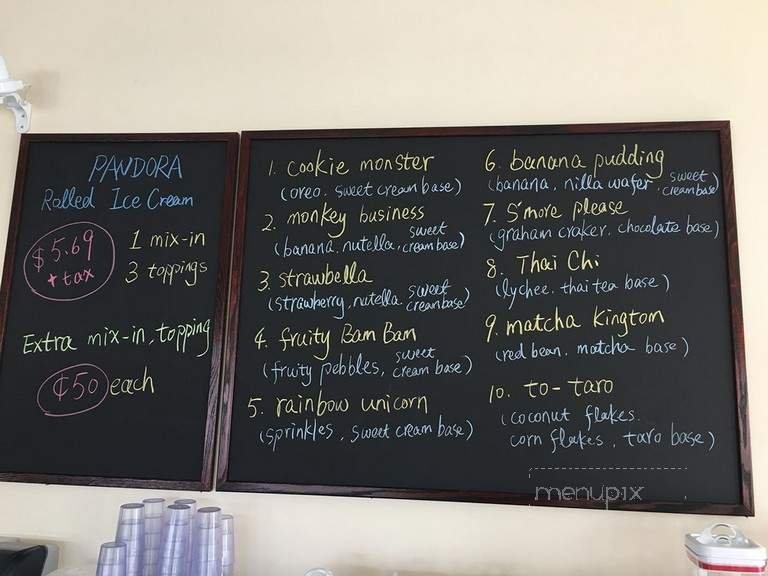 PANDORA
Rolled Ice Cream
$5.69
+ tax
1 mix-in
3 toppings
Extra mix-in, topping
¢50 each
1. cookie monster
(oreo. sweet cream base)
2. monkey business
(banana, nutella, sweet cream base)
3. strawbella
(strawberry, nutella. sweet cream base)
4. fruity Bam Bam
(fruity pebbles, sweet cream base)
5. rainbow unicorn
(sprinkles, sweet cream base)
6. banana pudding
(banana, nilla wafer, sweet cream base)
7. S'more please
(graham craker. chocolate base)
8. Thai Chi
(lychee. thai tea base)
9. matcha kingtom
(red bean. matcha base)
10. to-taro
(coconut flakes.
corn flakes, taro base)
menupix